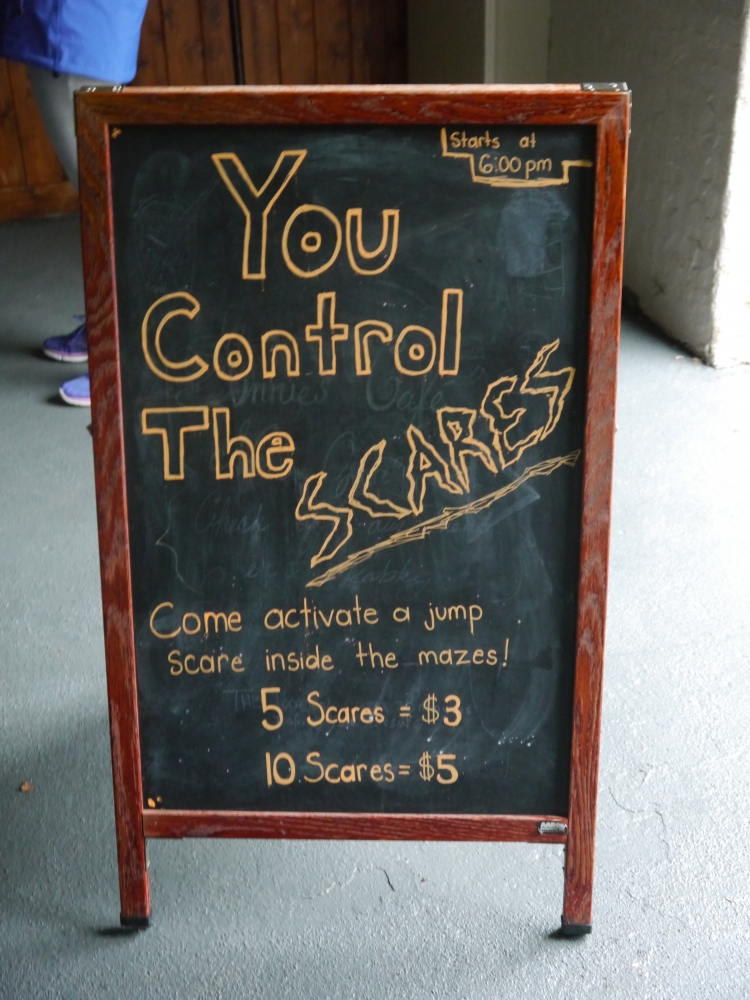 Starts at
6:00pm
You
Control
The SCARES
Come activate a jump
scare inside the mazes!
5 Scares = $3
10 Scares = $5